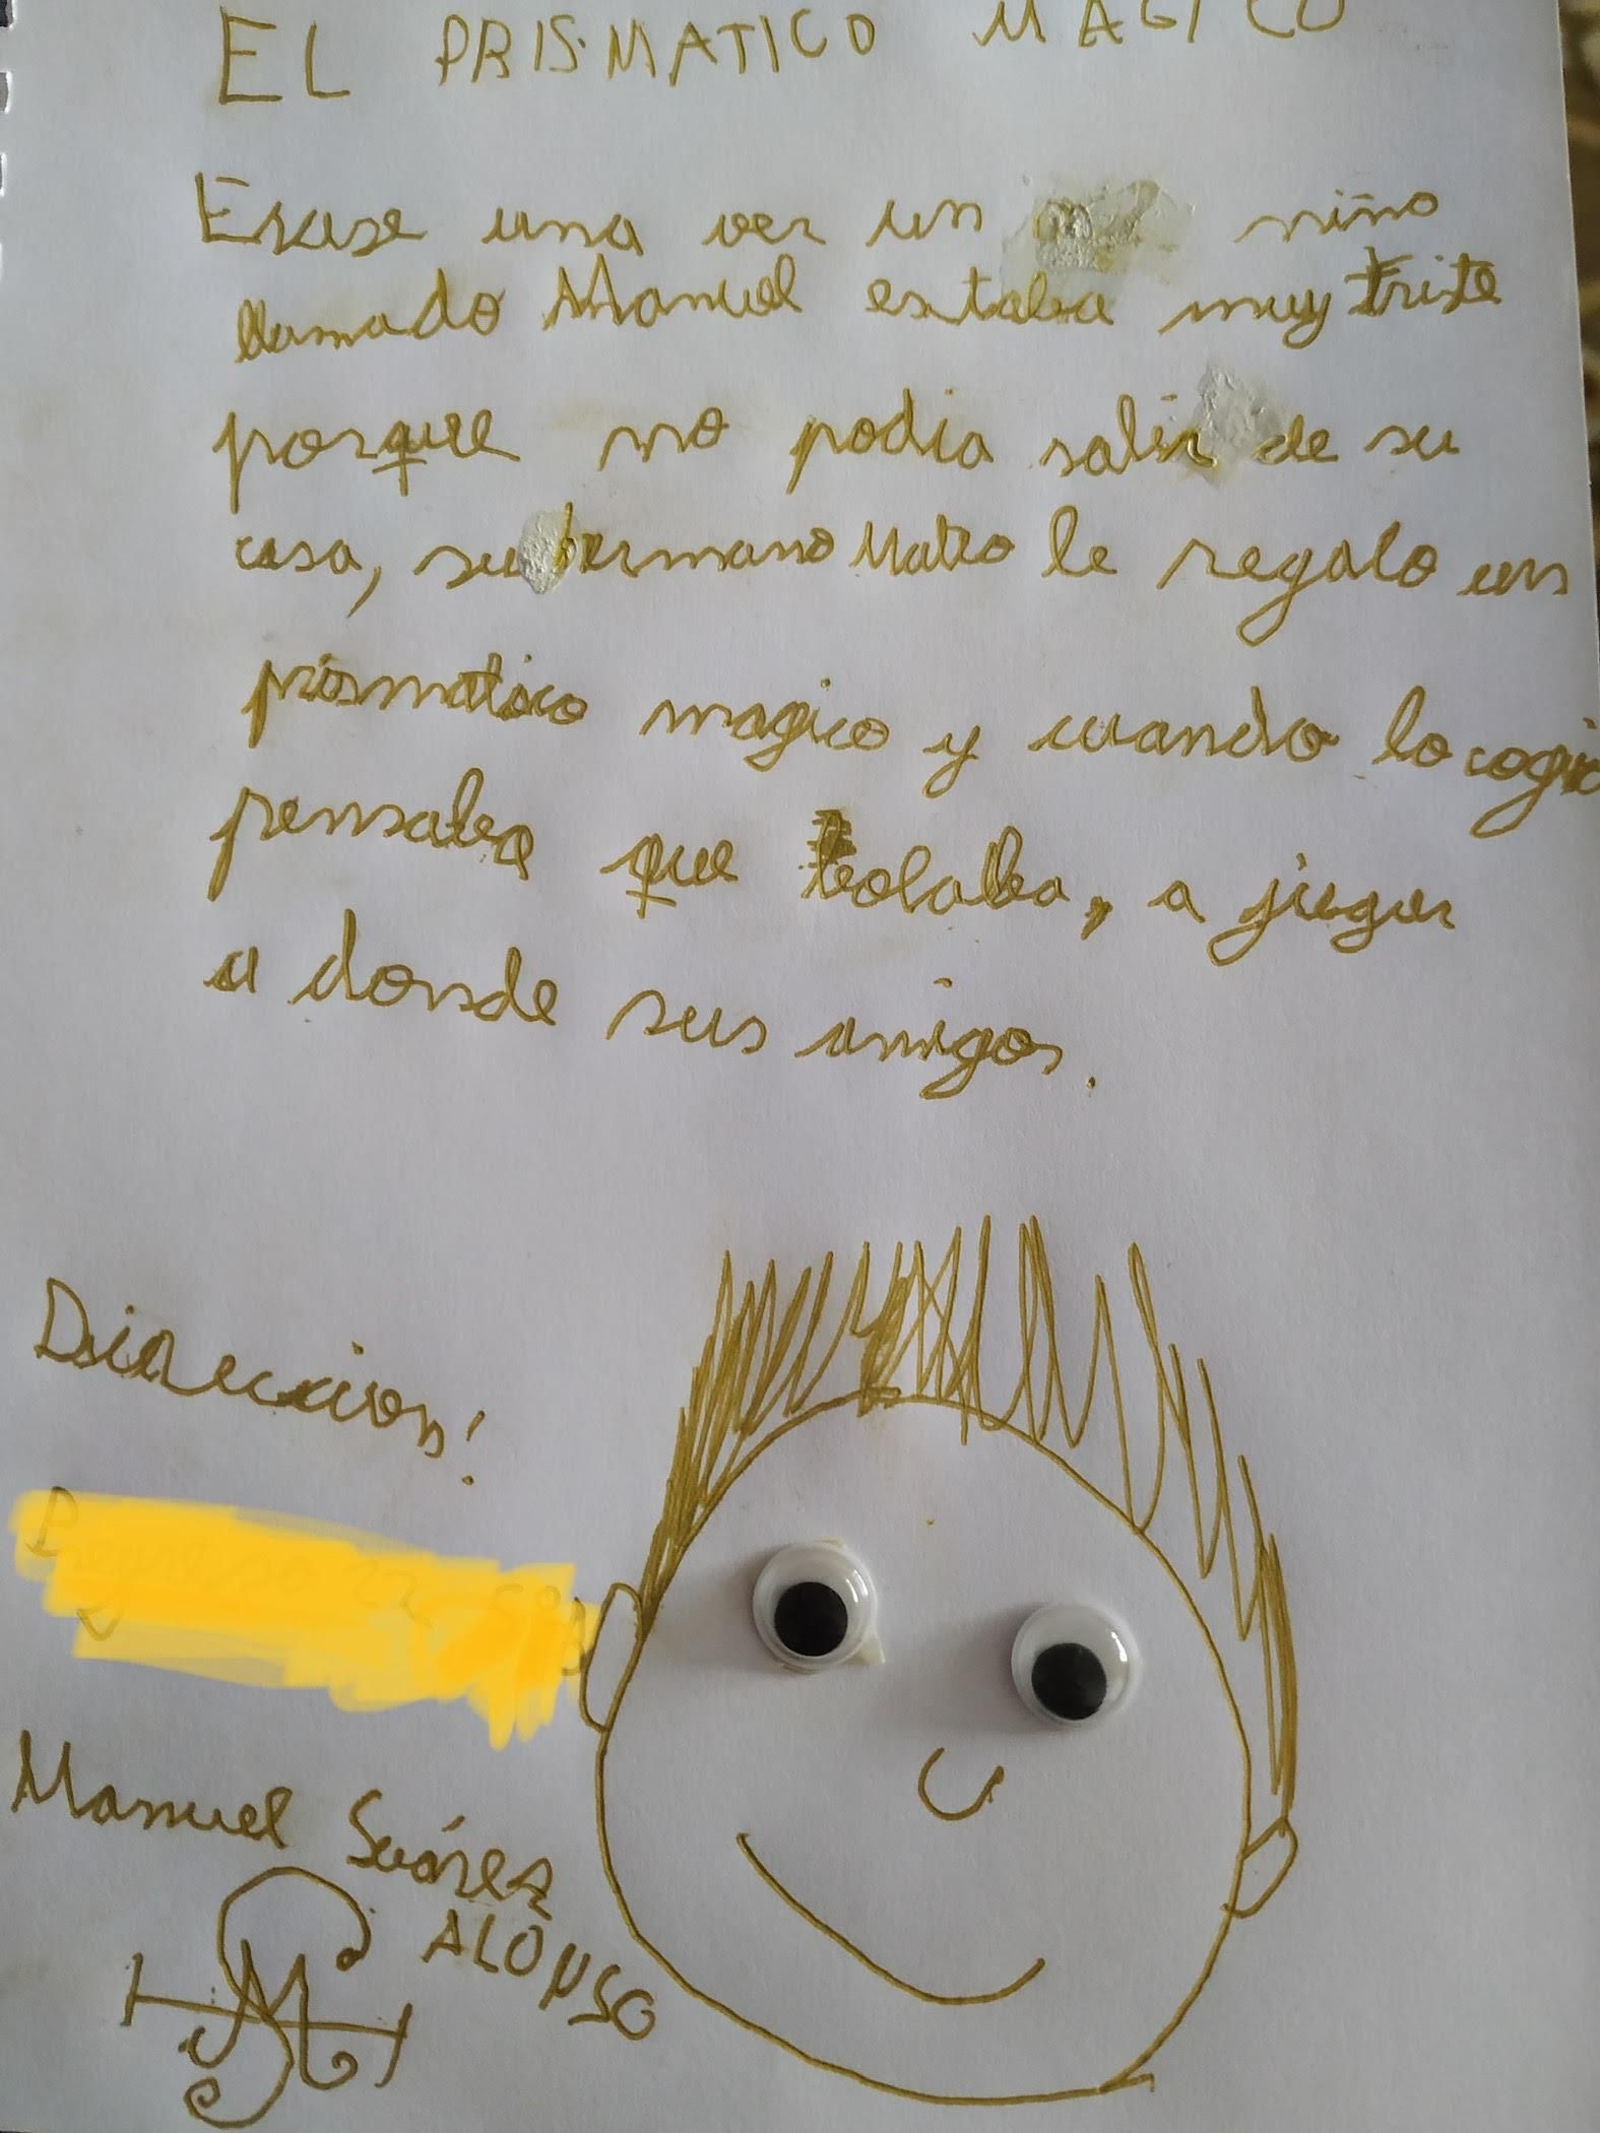 EL PRISMATICO MAGICO
Erase una vez un niño
llamado Manuel estaba muy triste
porque no podia salir de su
casa, su hermano Mateo le regalo un
prismatico magico y cuando lo cogio
pensaba que bolaba, a jugar
a donde sus amigos.
Direccion:
Manuel Suárez
ALONSO